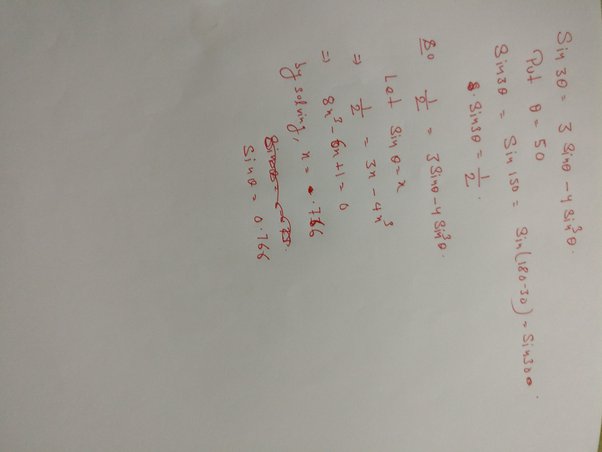 Sin 3θ = 3 Sinθ - 4 Sin³θ.
Put θ = 50
Sin3θ = Sin 150 = Sin(180-30) = Sin30.
Sin3θ = 1/2.
So 1/2 = 3Sinθ - 4 Sin³θ.
Let Sinθ = x
⇒ 1/2 = 3x - 4x³
⇒ 8x³ - 6x + 1 = 0
by solving, x = .766
Sinθ = 0.766